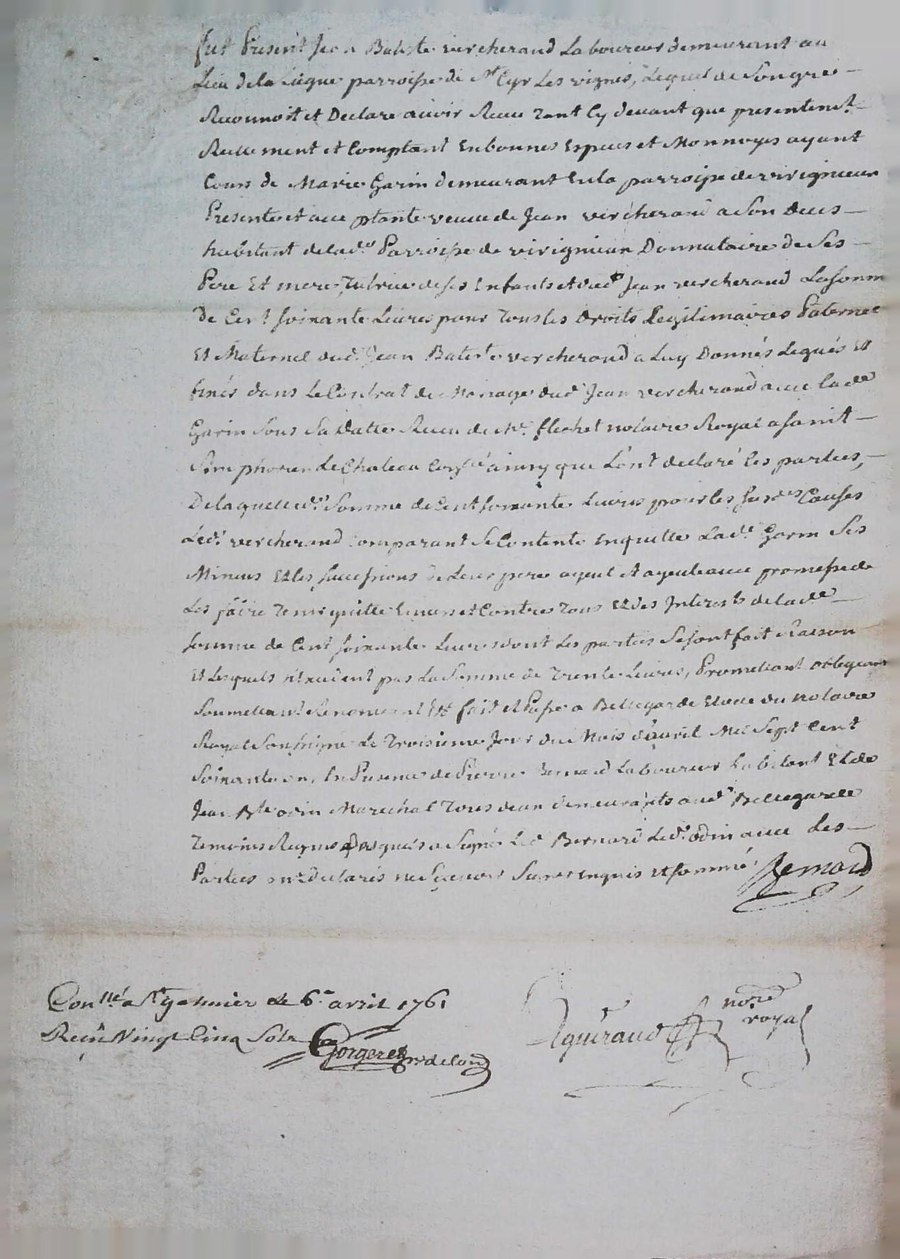 fut Present Jean Batiste vercherand Laboureur demeurant au
Lieu de la parroisse de St Cyr Les vignes, Lequel de Son gré
Reconnoit et Declare avoir Receu tant Cy devant que presentement
Reellement et Comptant En bonnes Especes et Monnoyes ayant
Cours de Marie Garin demeurant En la parroisse de virignieu
Presente et acceptante veuve de Jean vercherand a Son deces
habitant de lade Parroisse de virignieu Donnataire de Ses
Pere Et mere, Tutrice de ses Enfants et dud. Jean vercherand La somme
De Cent soixante Livres pour Tous les droits Legitimaires Paternel
Et Maternel dud. Jean Batiste vercherand a Luy Donnés Legués Et
finés dans Le Contrat de Mariage dud. Jean vercherand avec lade
Garin Sous Sa Datte Receu de Me flechet notaire Royal a saint
Simphorien Le Chateau ainsy que L'ont declaré les parties,
De laquelle de Somme de Cent soixante Livres pour les Susdes Causes
Led. vercherand Comparant Se Contente En quitte Lade Garin Ses
Mineurs Et les successions de Leur pere ayeul Et ayeule avec promesse de
Les faire Tenir quitte Envers et Contre Tous Et des Interests de lade
somme de Cent soixante Livres dont Les parties Se sont fait Raison
Et Lesquels n'excedent pas La Somme de Trente Livres, Promettant obligeant
Soumettant Renonceant Et fait et Passé a Bellegarde Etude du notaire
Royal Soussigné Le Troisieme Jour du Mois d'avril Mil Sept Cent
Soixante un, En Presence de Pierre Bernard Laboureur habitant Et de
Jean Bte odin Marechal demeurants aud. Bellegarde
Temoins Requis Lesquels a Signé Led. Bernard Led. odin avec Les
Parties ont Declarés ne Sçavoir Signer Enquis et sommé
Bernard
Conllé a St galmier le 6e avril 1761
Reçu Vingt Cinq Sols
Gorgeret
Nore
royal